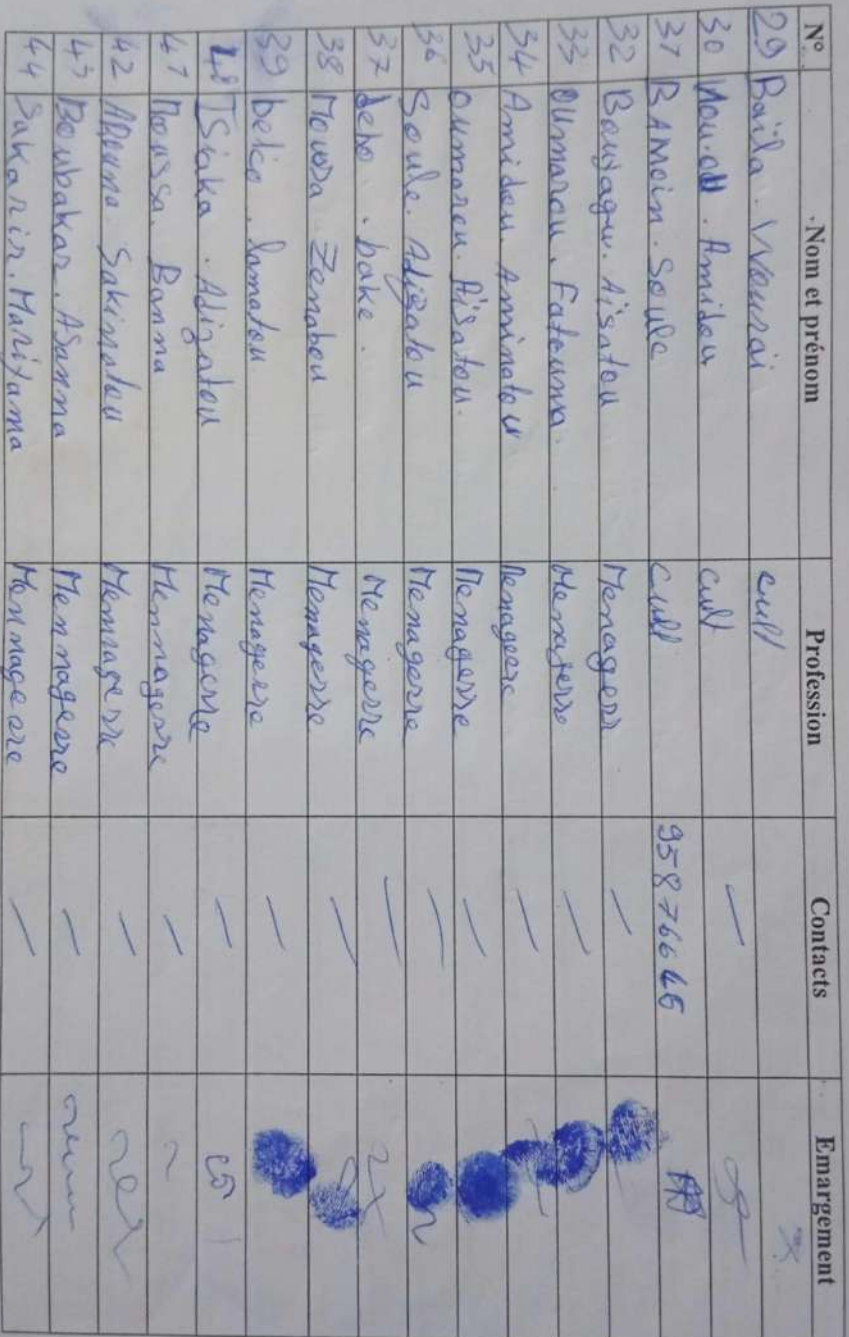 N° Nom et prénom Profession Contacts Emargement
29 Baïla. Wourai cult
30 Amidou cult —
31 BAMoin. Soule cult 95876646
32 Aïsatou Menagerr —
33 OUmarou. Fatouma. Menagerre —
34 Amidou. Aminatou Menagere —
35 oumarou. Aïsatou. Menagerre —
36 Soule. Adizatou Menagerre —
37 bake. Menagerre —
38 Moussa Zenabou Menagerre —
39 Deko. lamatou Menagerre —
40 TSiaka. Adizatou Menagerre —
41 Moussa. Banna Mennagerre —
42 Sakinatou Mennagerre —
43 Boubakar. ASanna Mennagerre —
44 Sakarir. Mariyama Mennagerre —